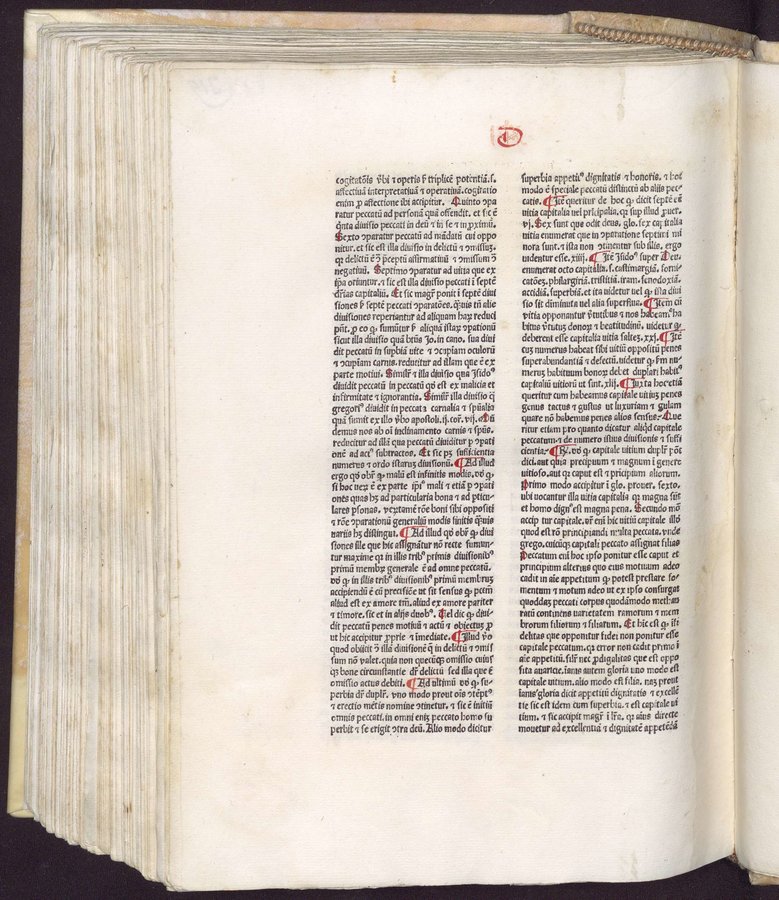 D
cogitatōis v̄bi ⁊ operis ꝑ triplicē potentiā.s.
affectiuā interpretatiuā ⁊ operatiuā. cogitatio
enim ꝓ affectione ibi accipitur. Quinto ↄpa
ratur peccatū ad personā quā offendit. et sic ē
q̄nta diuisio peccati in deū ⁊ in se ⁊ in ꝓximū.
Sexto ↄparatur peccatū ad mādatū cui oppo
nitur. et sic est illa diuisio in delictū ⁊ ↄmissū.
qꝛ delictū ē ↄ̄ p̄ceptū affirmatiuū ⁊ ↄmissum ↄ̄
negatiuū. Septimo ↄparatur ad vitia que ex
ip̄a oriuntur. ⁊ sic est illa diuisio peccati ī septē
dr̄ias capitaliū. Et sic magr̄ ponit ī septē diui
siones ẜ septē peccati ↄparatōes. q̄uis tn̄ alie
diuisiones reperiantur ad aliquam haꝝ reduci
pn̄t. ꝓ eo ꝙ sumūtur ẜ aliquā istaꝝ ↄparationū
sicut illa diuisio quā btūs Jo. in cano. sua diui
dit peccatū in suꝑbiā vite ⁊ ↄcupiam oculorū
⁊ ↄcupiam carnis. reducitur ad illam que ē ex
parte motiui. Similr̄ ⁊ illa diuisio qua Jsido⁹
diuidit peccatū in peccatū qd̄ est ex malicia et
infirmitate ⁊ ignorantia. Similr̄ illa diuisio q̄
gregori⁹ diuidit in peccata carnalia ⁊ sp̄ualia
quā sumit ex illo v̄bo apostoli. ij. cor̄. vij. Mū
demus nos ab oī inclinamento carnis ⁊ sp̄us.
reducitur ad illā qua peccatū diuiditur ꝑ ↄpati
onē ad act⁹ subtractos. Et sic pꝫ sufficientia
numerus ⁊ ordo istaruꝫ diuisionū. Ad illud
ergo qd̄ obr̄ ꝙ malū est infinitis modis. vō ꝙ
si hoc veꝝ ē ex parte ip̄i⁹ mali ⁊ etiā ꝑ ↄpati
ones quas hꝫ ad particularia bona ⁊ ad pticu-
lares ꝑsonas. veꝝtamē rōne boni sibi oppositi
⁊ rōne ↄparationū generaliū modis finitis q̄uis
variis hꝫ distingui. Ad illud qd̄ obr̄ ꝙ diui
siones ille que hic assignātur nō recte sumun-
tur maxime qꝛ in illis trib⁹ primis diuisionib⁹
primū membꝝ generale ē ad omne peccatū.
vō ꝙ in illis trib⁹ diuisionib⁹ primū membruꝫ
accipiendū ē cū precisiōe ut sit sensus ꝙ pctm̄
aliud est ex amore tm̄. aliud ex amore pariter
⁊ timore. sic et in aliis duob⁹. Vel dic ꝙ diui-
dit peccatū penes motiuū ⁊ actū ⁊ obiectuꝫ ꝑ
ut hic accipitur ꝓprie ⁊ īmediate. Illud v̄o
quod obiicit ↄ̄ illā diuisionē q̄ in delictū ⁊ ↄmis
sum nō valet. quia non quecūqꝫ omissio cuius
qꝫ bone circumstantie dr̄ delictū sed illa que ē
omissio actus debiti. Ad ultimū vō ꝙ su-
perbia dr̄ duplr̄. vno modo prout oīs ↄtēpt⁹
⁊ erectio mētis nomine ↄtinetur. ⁊ sic ē initiū
omnis peccati. in omni enīꝫ peccato homo su
perbit ⁊ se erigit ↄtra deū. Alio modo dicitur
superbia appetit⁹ dignitatis ⁊ honoris. ⁊ hoc
modo ē speciale peccatū distinctū ab aliis pec-
catis. Jtē queritur de hoc ꝙ dicit septē eē
vitia capitalia uel principalia. qꝛ sup illud ꝓuer.
vj. Sex sunt que odit deus. glo. sex capitalia
vitia enumerat que in ↄparatione septimi mi
nora sunt. ⁊ ista non ↄtinentur sub illis. ergo
videntur esse. xiiij. Jtē Jsido⁹ super Deu.
enumerat octo capitalia. s. castrimargiā. forni-
catōeꝫ. philargiriā. tristitiā. iram. senodoxiā.
accidiā. superbiā. et ita videtur vel ꝙ ista diui
sio sit diminuta vel alia superflua. Jtem cū
vitia opponantur v̄tutibus ⁊ nos habeam⁹ ha
bitus v̄tutuꝫ donoꝝ ⁊ beatitudinū. videtur ꝙ
deberent esse capitalia vitia saltez. xxj. Jtē
cuꝫ numerus habeat sibi vitiū oppositū penes
superabundantiā ⁊ defectū. videtur ꝙ ẜm nu-
meꝝ habituum bonoꝝ debet duplari habit⁹
capitaliū vitiorū ut sint. xlij. Juxta hoc etiā
queritur cum habeamus capitale vitiuꝫ penes
genus tactus ⁊ gustus ut luxuriam ⁊ gulam
quare nō habemus penes alios sensus. Que
ritur etiam pro quanto dicatur aliqd̄ capitale
peccatum ⁊ de numero istius diuisionis ⁊ suffi
cientia. R̄. vō ꝙ capitale vitium duplr̄ pōt
dici. aut quia precipuum ⁊ magnum ī genere
vitioso. aut qꝛ caput est ⁊ principium aliorum.
Primo modo accipitur ī glo. prouer. sexto.
ubi vocantur illa vitia capitalia qꝛ magna sūt
et homo dign⁹ est magna pena. Secundo mō
accipitur capitale. ⁊ ꝙ enī hic vitiū capitale illd̄
quod est rō principiandi multa peccata. vnde
grego. cuicūqꝫ capitali peccato assignat filias
Peccatum enī hoc ipso ponitur esse caput et
principium alterius quo eius motiuum adeo
cadit in aīe appetitum ꝙ potest prestare fo-
mentum ⁊ motum adeo ut ex ipso consurgat
quoddaꝫ peccati corpus quodāmodo membro
ratū continens varietatem ramorum ⁊ mem
brorum filiorum ⁊ filiarum. Et hic est ꝙ ifi-
delitas que opponitur fidei non ponitur esse
capitale peccatum. qꝛ error non cadit primo ī
aīe appetitū. silr̄ nec ꝓdigalitas que est oppo
sita auaricie. inanis autem gloria uno modo est
capitale uitium. alio modo est filia. nā prout
ianis gloria dicit appetitū dignitatis ⁊ excellē
tie sic est idem cum superbia. ⁊ est capitale vi
tium. ⁊ sic accipit magr̄ ī lr̄a. qꝛ aīus directe
mouetur ad excellentiā ⁊ dignitatē appetēdā